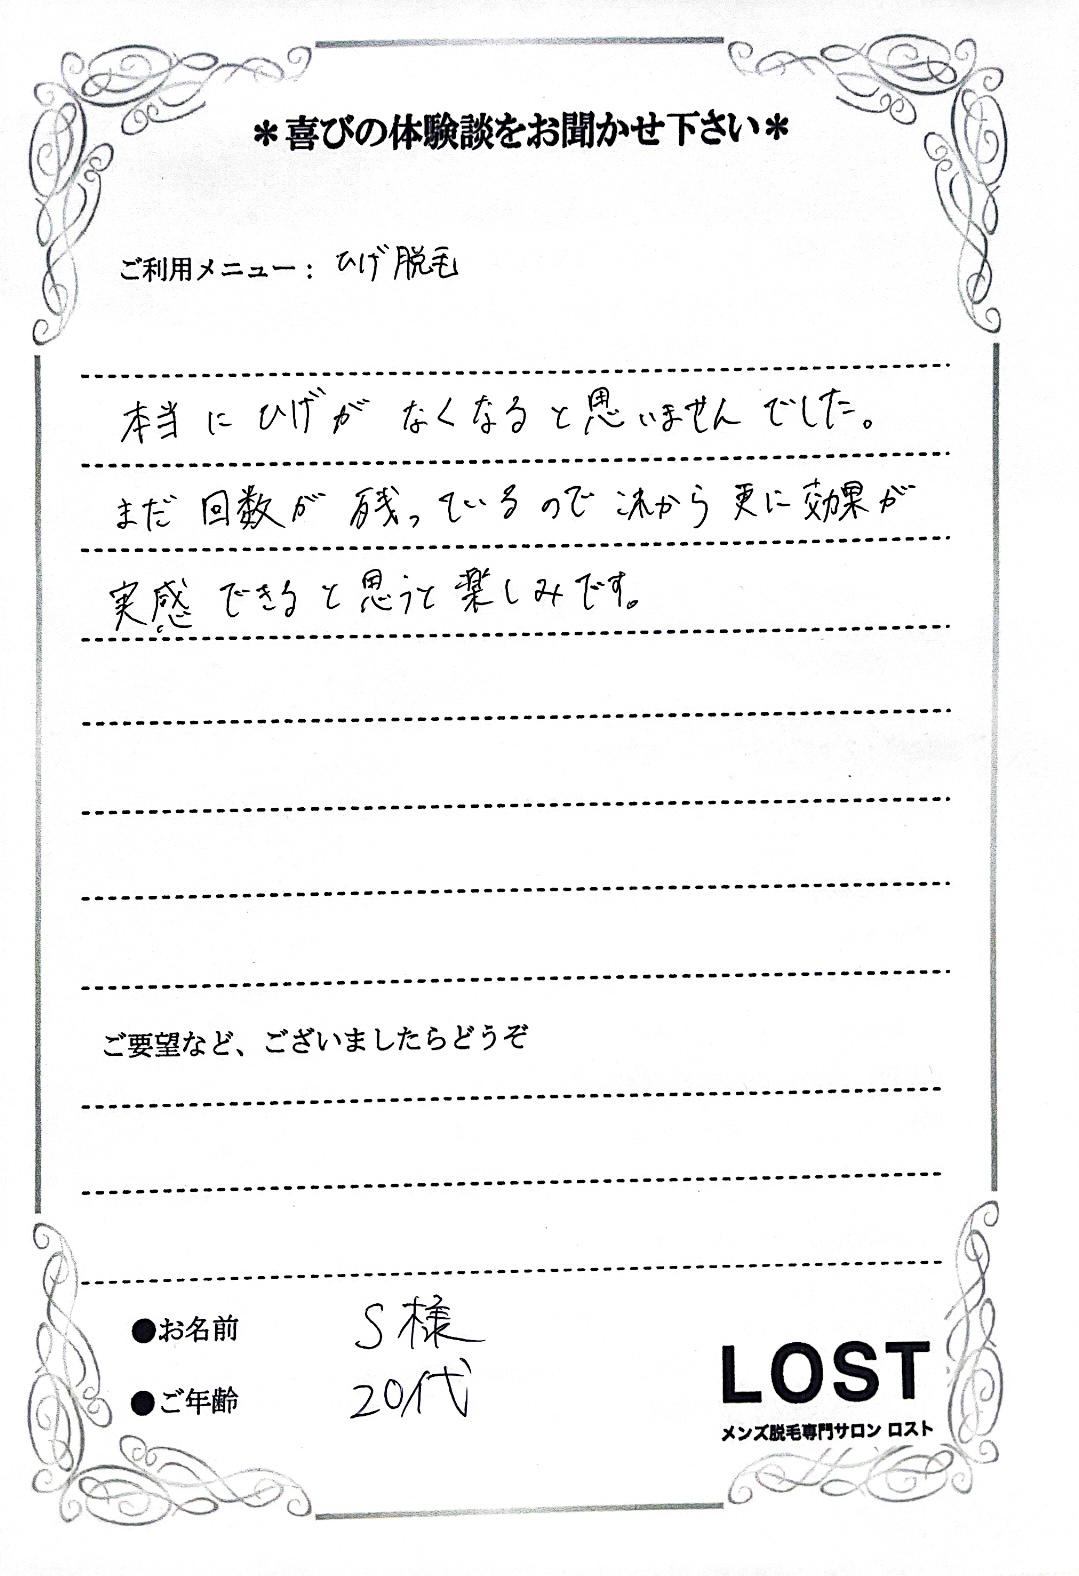 ＊喜びの体験談をお聞かせ下さい＊
ご利用メニュー：ひげ脱毛
本当にひげがなくなると思いませんでした。
まだ回数が残っているのでこれから更に効果が
実感できると思うと楽しみです。
ご要望など、ございましたらどうぞ
●お名前 S様
●ご年齢 20代
LOST
メンズ脱毛専門サロン ロスト